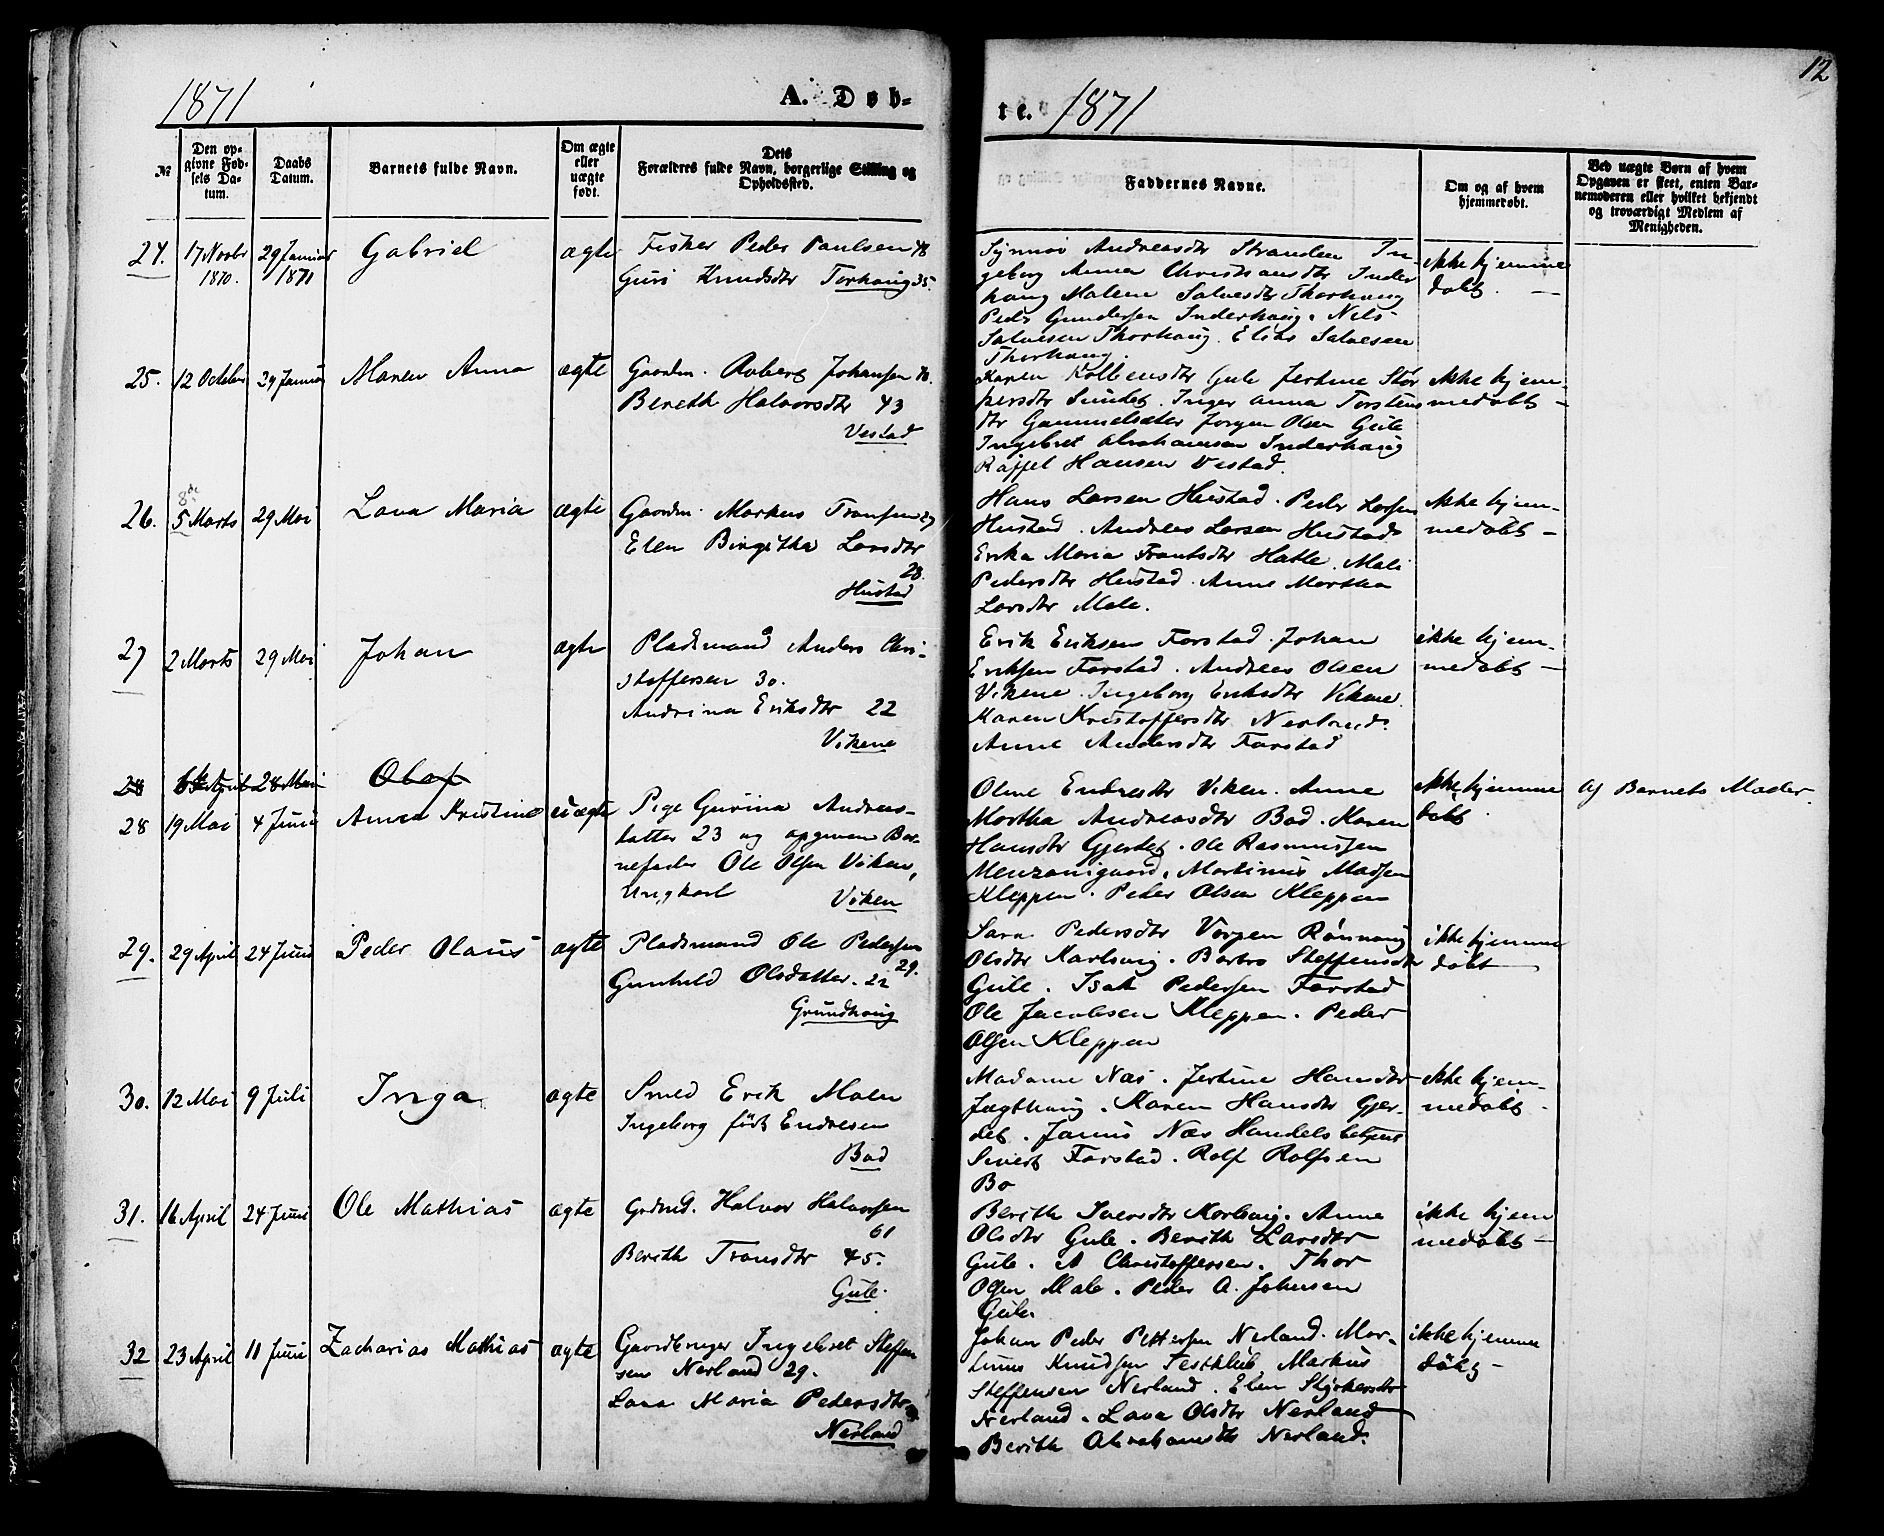 12
1871
A. Døb-
te. 1871
№
Den op-
givne Fød-
sels Da-
tum.
Daabs
Datum.
Barnets fulde Navn.
Om ægte
eller
uægte
født.
Dets
Forældres fulde Navn, borgerlige Stilling og
Opholdssted.
Faddernes Navne.
Om og af hvem
hjemmedøbt.
Ved uægte Børn af hvem
Opgaven er skeet, enten Bar-
nemoderen eller hvilket bekjendt
og troværdigt Medlem af
Menigheden.
24. 17 Novbr 29 Januar Gabriel ægte Fisker Peder Paulsen 48
1870. 1871 Guri Knudsdtr Torhaug 35.
Synnøv Andreasdtr Stranden In-
geborg Anna Christiansdtr Inder
haug Malene Salvesdtr Thorhaug
Peder Gundersen Inderhaug. Nils
Salvesen Thorhaug. Elias Salvesen
Thorhaug.
ikke hjemme
døbt. —
25. 12 October 29 Januar Maren Anna ægte Gaardm. Robert Johansen
Bereth Halvorsdtr 43
Vestad
Karen Kolbensdtr Gule Jertine
persdtr Sundet. Inger Anna Torstens
dtr Gammelsæter Jørgen Olsen Gule
Ingebret Abrahamsen Inderhaug
Raffel Hansen Vestad.
ikke hjem-
medøbt —
26. 8de
5 Marts 29 Mai Lava Maria ægte Gaardm. Markus Transen 27
Elen Birgitha Larsdtr
28.
Hustad
Hans Larsen Hustad. Peder Larsen
Hustad. Andreas Larsen Hustad
Erika Maria Frantsdtr Hatle. Mali
Pedersdtr Hustad. Anne Martha
Larsdtr Male.
ikke hjem-
medøbt —
27 2 Marts 29 Mai Johan ægte Pladsmand Anders Chri-
stoffersen 30.
Andrina Eriksdtr 22
Vikene
Erik Eriksen Farstad. Johan
Eriksen Farstad. Andreas Olsen
Vikene. Ingeborg Eriksdtr Vikene.
Karen Kristoffersdtr
Anne Andersdtr Farstad
ikke hjem-
medøbt —
28 April 28 Mai Olaf
28 19 Mai 4 Juni Anna Kristine uægte Pige Gurina Andreas-
datter 23 og opgiven Bar-
nefader Ole Olsen Viken,
Ungkarl Viken
Oline Endresdtr Viken. Anne
Martha Andreasdtr Bad. Karen
Hansdtr Gjerdet. Ole Rasmussen
Martinus Madsen
Kleppen. Peder Olsen Kleppen
ikke hjemme
døbt.
Af Barnets Moder.
29. 29 April 24 Juni Peder Olaus ægte Pladsmand Ole Pedersen
29.
Gunhild Olsdatter. 22
Grundhaug
Sara Pedersdtr Vorpen Rønnaug
Olsdtr Karlsvig. Barbro Steffensdtr
Gule. Isak Pedersen Farstad
Ole Jacobsen Kleppen. Peder
Olsen Kleppen
ikke hjemme
døbt
30. 12 Mai 9 Juli Inga ægte Smed Erik Malen
Ingeborg født Endresen
Bad
Madame Næs. Jertine Hansdtr
Jægthaug. Karen Hansdtr Gjer-
det. Janus Næs Handelsbetjent
Sivert Farstad. Rolf Rolfsen
Bo
ikke hjem-
medøbt.
31. 16 April 24 Juni Ole Mathias ægte Grdmd. Halvor Halvorsen
61
Berith Transdtr 45.
Gule.
Berith Iversdtr Karlsvig. Anne
Olsdtr Gule. Berith Larsdtr
Gule. A Christoffersen. Thor
Olsen Male. Peder A. Johnsen
Gule.
ikke hjem
medøbt —
32 23 April 11 Juni Zacharias Mathias ægte Gaardbruger Ingebret Steffen
sen Nerland 29.
Lava Maria Pedersdtr
Nerland
Johan Peder Pettersen Nerland. Mar-
tinus Knudsen Markus
Steffensen Nerland. Elen Styrkersdtr
Nerland. Lava Olsdtr Nerland
Berith Abrahamsdtr Nerland.
ikke hjemme
døbt —